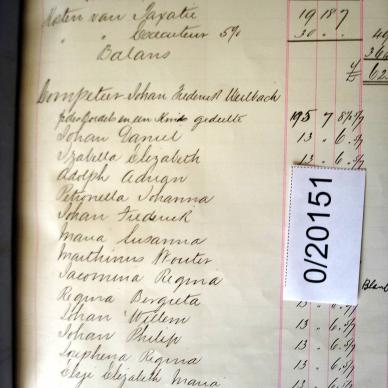 Kosten van Taxatie 19 18 7
" " Executeur 5% 30 " "
Balans
Competeer Johan Frederick Weilbach
een Kinds gedeelte 195 7
Johan Daniel 13 " 6
Izabella Elizabeth 13 " 6
Adolph Adrian 13 " 6
Petronella Johanna
Johan Frederick
Maria Susanna
Marthinus Wouter
Jacomina Regina
Regina Bergieta
Johan Willem 13 " 6
Johan Philip 13 " 6
Josephena Regina 13 " 6
Elsje Elizabeth Maria 13 " 6
0/20151